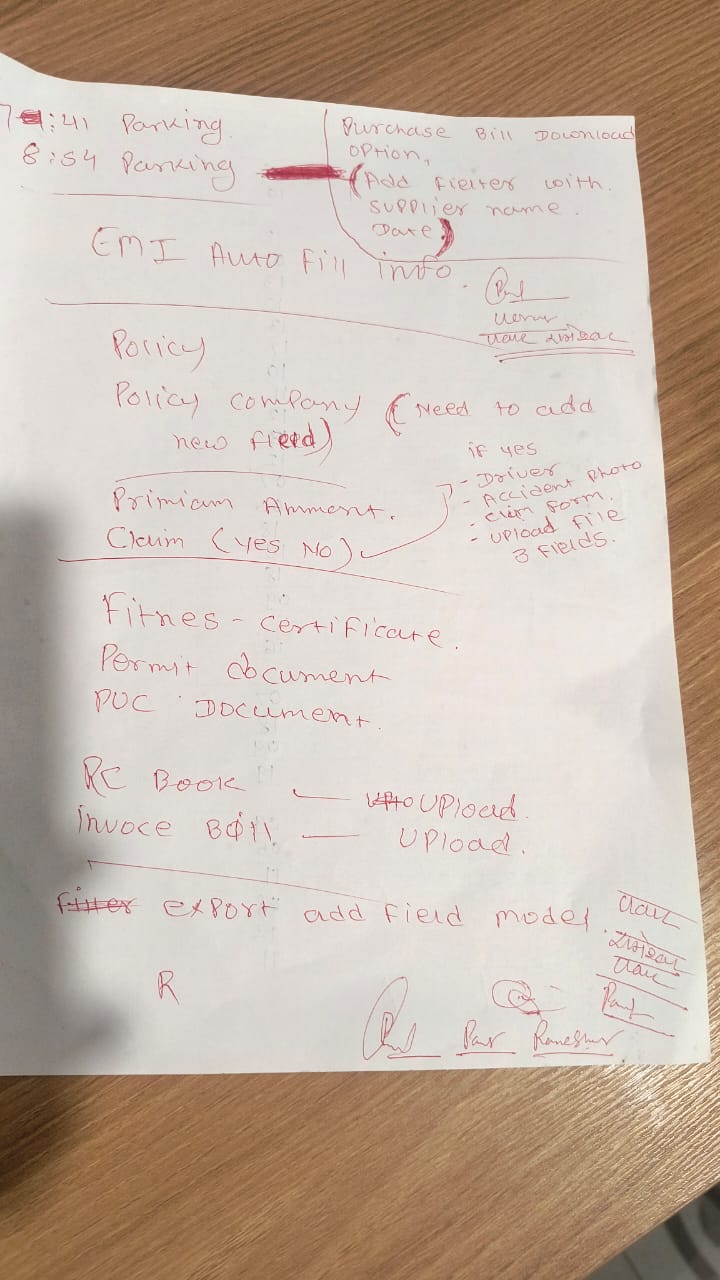 7:41 Parking
8:54 Parking
Purchase Bill Download
option,
(Add fielter with
supplier name.
Date)
EMI Auto Fill info.
Policy
Policy company (Need to add
new field)
Primium Ammont.
Claim (Yes No)
if yes
- Driver
- Accident photo
- Clim form.
- upload file
3 fields.
Fitnes - certificate.
Permit document
PUC Document.
RC Book — Upload.
invoce Bill — Upload.
export add field model.
R